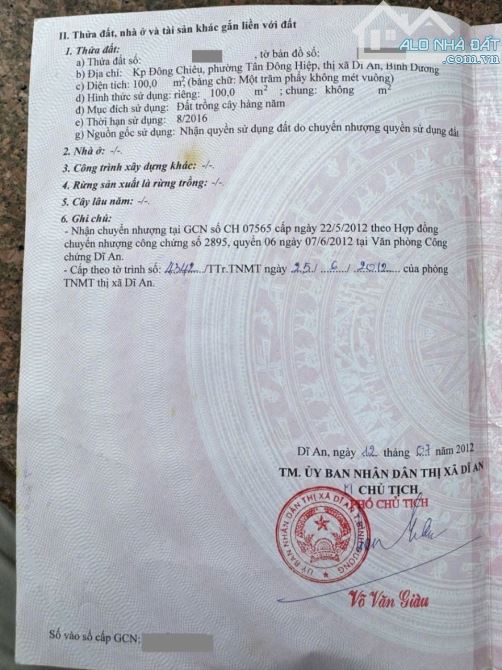 ALO NHÀ ĐẤT
II. Thửa đất, nhà ở và tài sản khác gắn liền với đất
1. Thửa đất:
a) Thửa đất số: , tờ bản đồ số:
b) Địa chỉ: Kp Đông Chiêu, phường Tân Đông Hiệp, thị xã Dĩ An, Bình Dương
c) Diện tích: 100,0 m², (bằng chữ: Một trăm phẩy không mét vuông)
d) Hình thức sử dụng: riêng: 100,0 m²; chung: không m²
đ) Mục đích sử dụng: Đất trồng cây hàng năm
e) Thời hạn sử dụng: 8/2016
g) Nguồn gốc sử dụng: Nhận quyền sử dụng đất do chuyển nhượng quyền sử dụng đất
2. Nhà ở: -/-.
3. Công trình xây dựng khác: -/-.
4. Rừng sản xuất là rừng trồng: -/-.
5. Cây lâu năm: -/-.
6. Ghi chú:
- Nhận chuyển nhượng tại GCN số CH 07565 cấp ngày 22/5/2012 theo Hợp đồng
chuyển nhượng công chứng số 2895, quyển 06 ngày 07/6/2012 tại Văn phòng Công
chứng Dĩ An.
- Cấp theo tờ trình số: 4342/TTr.TNMT ngày 25/6/2012 của phòng
TNMT thị xã Dĩ An.
Dĩ An, ngày 12 tháng 07 năm 2012
TM. ỦY BAN NHÂN DÂN THỊ XÃ DĨ AN
CHỦ TỊCH
PHÓ CHỦ TỊCH
ỦY BAN NHÂN DÂN THỊ XÃ DĨ AN T. BÌNH DƯƠNG
Võ Văn Giàu
Số vào sổ cấp GCN: